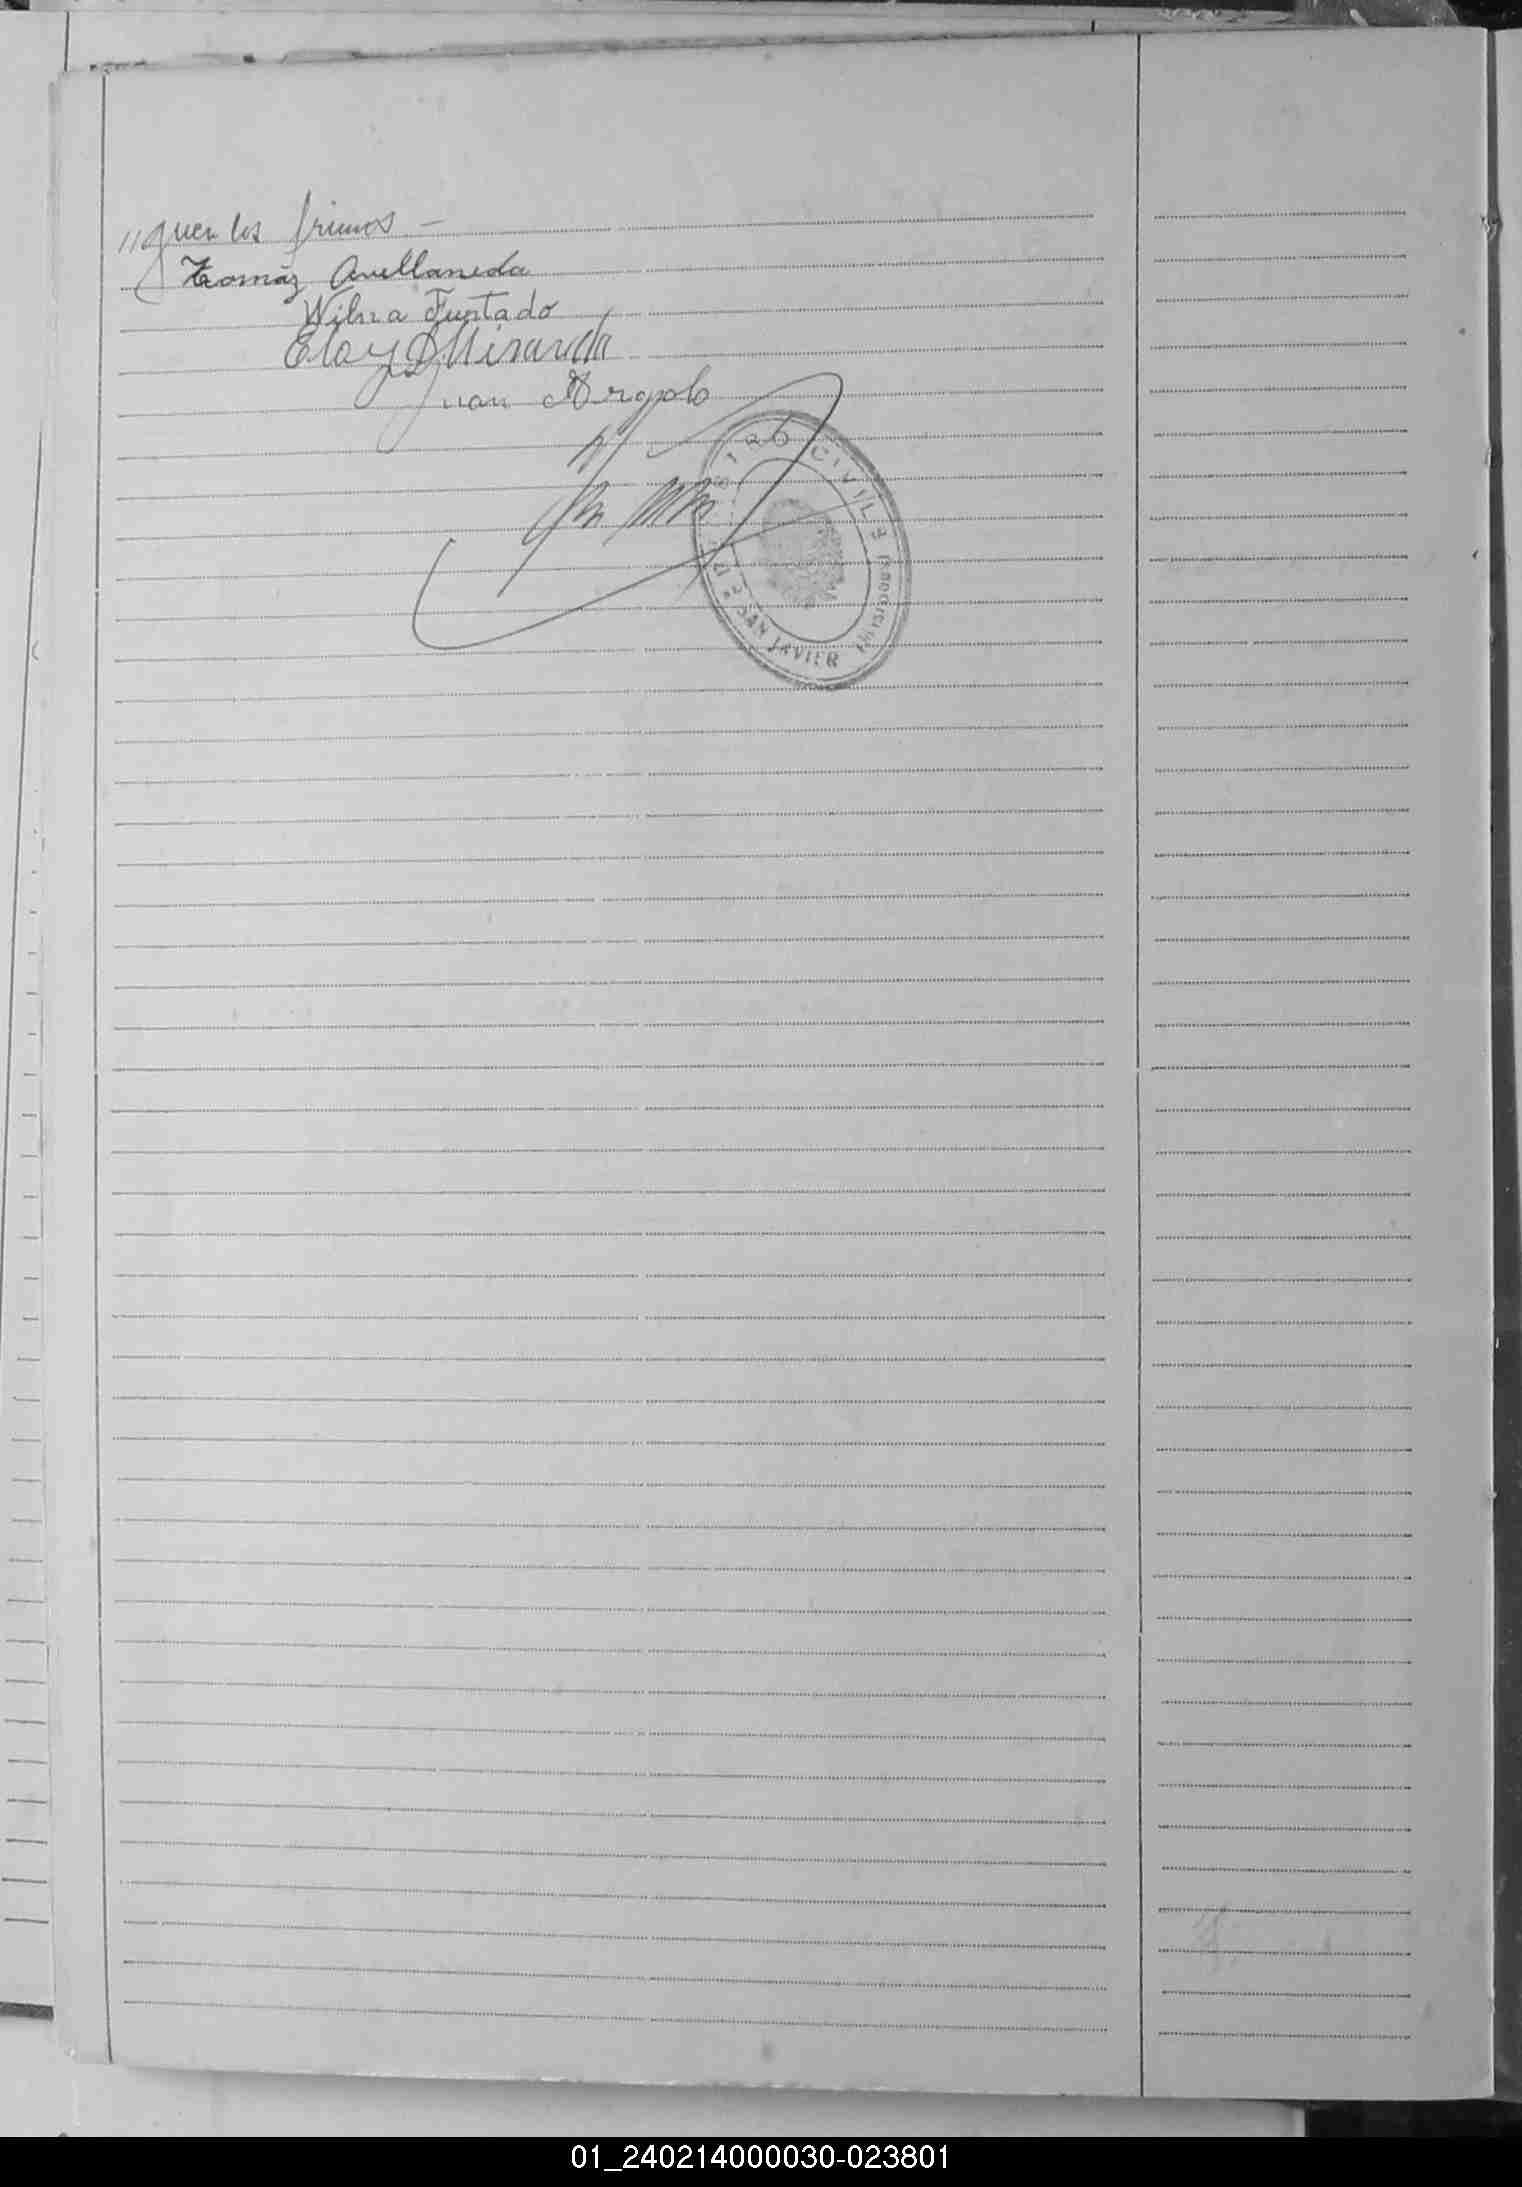 //guen los firmas —
Tomáz Avellaneda
Wilna Furtado
Eloy D Miranda
Juan Argolo
REGISTRO CIVIL
SAN JAVIER (MISIONES)
01_240214000030-023801